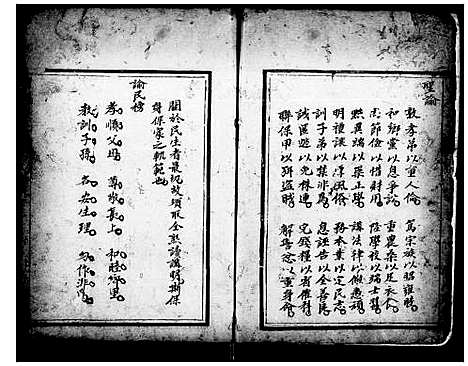 聖諭
敦孝弟以重人倫　篤宗族以昭雍睦
和鄉黨以息爭訟　重農桑以足衣食
尚節儉以惜財用　隆學校以端士習
黜異端以崇正學　講法律以儆愚頑
明禮讓以厚風俗　務本業以定民志
訓子弟以禁非為　息誣告以全善良
誡匿逃以免株連　完錢糧以省催科
聯保甲以弭盜賊　解讐忿以重身命
關於民生者最切故項取全熟讀講明斯保
身保家之軌範也
諭民榜
孝順父母　尊敬長上　和睦鄉里
教訓子孫　各安生理　勿作非為